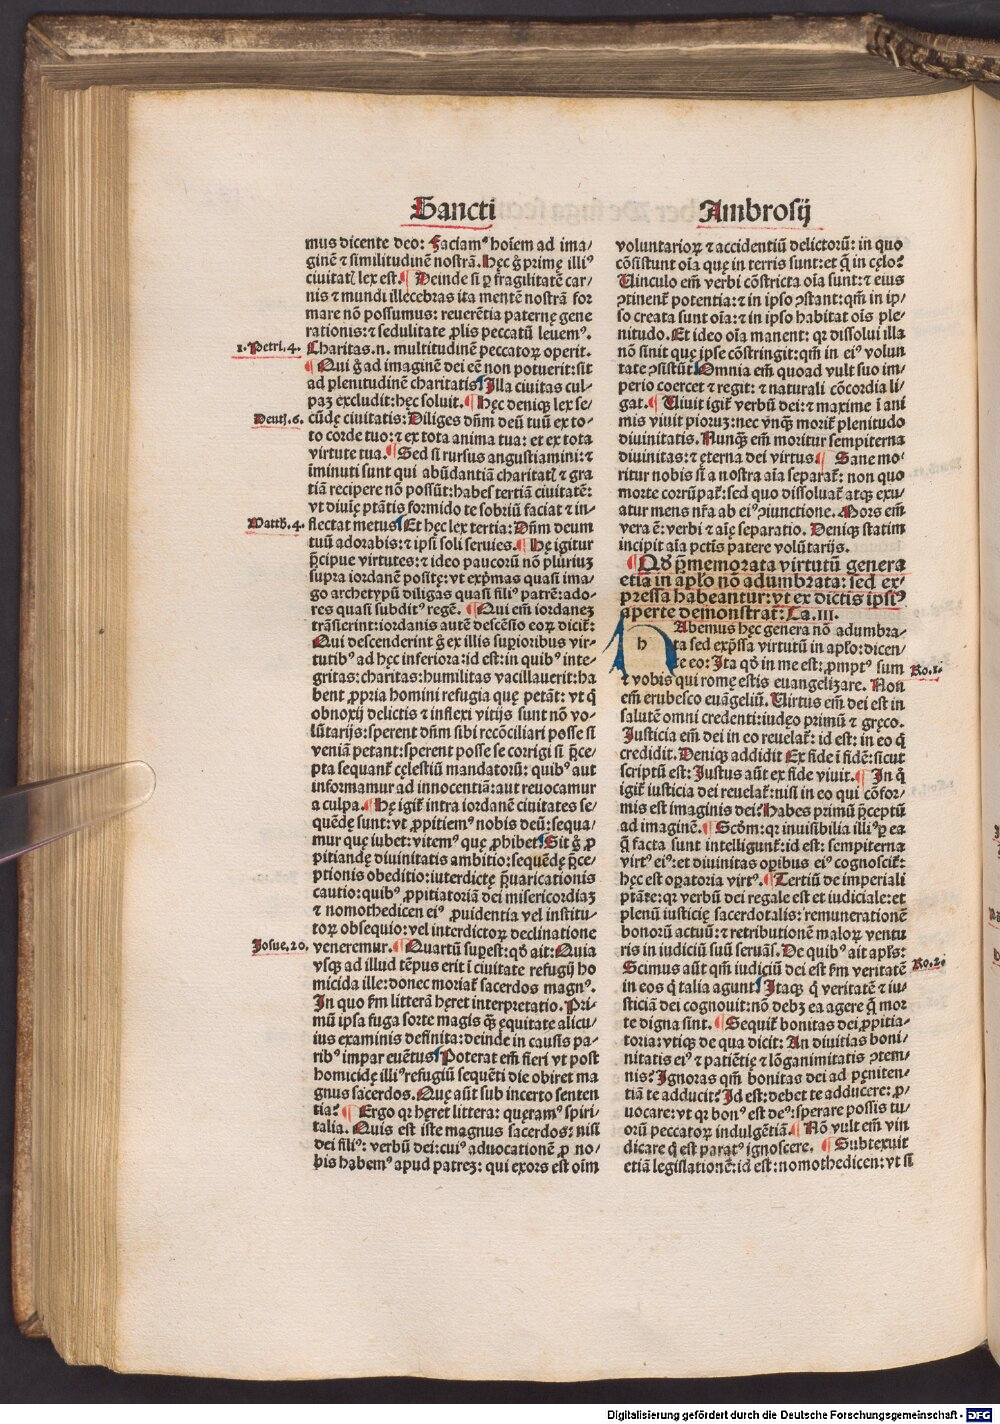 Sancti Ambrosij
mus dicente deo: Faciamꝰ hoīem ad ima⸗
ginē ⁊ similitudinē nostrā. Hęc g̊ primę illiꝰ
ciuitatꝭ lex est. Deinde si ꝑ fragilitatē car⸗
nis ⁊ mundi illecebras ita mentē nostrā for
mare nō possumus: reuerētia paternę gene
rationis: ⁊ sedulitate ꝓlis peccatū leuemꝰ.
1. Petri. 4.
Charitas .n. multitudinē peccatoꝝ operit.
Qui g̊ ad imaginē dei eē non potuerit: sit
ad plenitudinē charitatis Illa ciuitas cul⸗
paꝫ excludit: hęc soluit. Hęc deniqꝫ lex se⸗
Deut. 6.
cūdę ciuitatis: Diliges dn̄m deū tuū ex to⸗
to corde tuo: ⁊ ex tota anima tua: et ex tota
virtute tua. Sed si rursus angustiamini: ⁊
īminuti sunt qui abūdantiā charitatꝭ ⁊ gra
tiā recipere nō possūt: habes tertiā ciuitatē:
vt diuię ptātis formido te sobriū faciat ⁊ in⸗
Matth. 4.
flectat metus Et hęc lex tertia: Dn̄m deum
tuū adorabis: ⁊ ipsi soli seruies. Hę igitur
p̄cipue virtutes: ⁊ ideo paucorū nō pluriuꝫ
supra iordanē positę: vt exp̄mas quasi ima⸗
go archetypū diligas quasi filiꝰ patrē: ado⸗
res quasi subditꝰ regē. Qui em̄ iordaneꝫ
trāsierint: iordanis autē descēsio eoꝝ dicit̄:
Qui descenderint g̊ ex illis supīoribus vir⸗
tutibꝰ ad hęc inferiora: id est: in quibꝰ inte⸗
gritas: charitas: humilitas vacillauerit: ha
bent ꝓpria homini refugia que petāt: vt q̇
obnoxij delictis ⁊ inflexi vitijs sunt nō vo⸗
lūtarijs: sperent dn̄m sibi recōciliari posse si
veniā petant: sperent posse se corrigi si p̄ce⸗
pta sequant̄ cęlestiū mandatorū: quibꝰ aut
informamur ad innocentiā: aut reuocamur
a culpa. Hę igit̄ intra iordanē ciuitates se⸗
quēdę sunt: vt ꝓpitiemꝰ nobis deū: sequa⸗
mur quę iubet: vitemꝰ quę ꝓhibet. Sit g̊ ꝓ
pitiandę diuinitatis ambitio: sequēdę p̄ce⸗
ptionis obeditio: iuterdictę p̄uaricationis
cautio: quibꝰ ꝓpitiatoriā dei misericordiaꝫ
⁊ nomothedicen eiꝰ ꝓuidentia vel institu⸗
toꝝ obsequio: vel interdictoꝝ declinatione
Josue. 20.
veneremur. Quartū supest: qd̄ ait: Quia
vsqꝫ ad illud tēpus erit ī ciuitate refugij ho
micida ille: donec moriat̄ sacerdos magnꝰ.
In quo ẜm litterā hęret interpretatio. Pri⸗
mū ipsa fuga sorte magis q̄ꝫ ęquitate alicu⸗
ius examinis definita: deinde in causis pa⸗
ribꝰ impar euētus Poterat em̄ fieri vt post
homicidę illiꝰ refugiū sequēti die obiret ma
gnus sacerdos. Quę aūt sub incerto senten
tia? Ergo qꝛ hęret littera: queramꝰ spiri⸗
talia. Quis est iste magnus sacerdos: nisi
dei filiꝰ: verbū dei: cuiꝰ aduocationē ꝓ no⸗
bis habemꝰ apud patreꝫ: qui exors est oīm
voluntarioꝝ ⁊ accidentiū delictorū: in quo
cōsistunt oīa quę in terris sunt: et q̄ in cęlo?
Uinculo em̄ verbi cōstricta oīa sunt: ⁊ eius
ꝯtinent̄ potentia: ⁊ in ipso ꝯstant: qm̄ in ip⸗
so creata sunt oīa: ⁊ in ipso habitat oīs ple⸗
nitudo. Et ideo oīa manent: qꝛ dissolui illa
nō sinit quę ipse cōstringit: qm̄ in eiꝰ volun
tate ꝯsistūt Omnia em̄ quoad vult suo im⸗
perio coercet ⁊ regit: ⁊ naturali cōcordia li
gat. Uiuit igit̄ verbū dei: ⁊ maxime ī ani
mis viuit pioruꝫ: nec vnqꝫ morit̄ plenitudo
diuinitatis. Nunqꝫ em̄ moritur sempiterna
diuinitas: ⁊ ęterna dei virtus. Sane mo⸗
ritur nobis si a nostra aīa separat̄: non quo
morte corrūpat̄: sed quo dissoluat̄ atqꝫ exu⸗
atur mens nr̄a ab eiꝰ ꝯiunctione. Mors em̄
vera ē: verbi ⁊ aīę separatio. Deniqꝫ statim
incipit aīa pctīs patere volūtarijs.
Qd̄ p̄memorata virtutū genera
etiā in aplo nō adumbrata: sed ex⸗
pressa habeantur: vt ex dictis ipsiꝰ
aperte demonstrat̄: Ca. III.
HAbemus hęc genera nō adumbra⸗
ta sed exp̄ssa virtutū in aplo: dicen⸗
te eo: Ita qd̄ in me est: ꝓmptꝰ sum
Ro. 1.
⁊ vobis qui romę estis euangelizare. Non
em̄ erubesco euāgeliū. Uirtus em̄ dei est in
salutē omni credenti: iudeo primū ⁊ gręco.
Justicia em̄ dei in eo reuelat̄: id est: in eo q̇
credidit. Deniqꝫ addidit Ex fide ī fidē: sicut
scriptū est: Justus aūt ex fide viuit. In q̇
igit̄ iusticia dei reuelat̄: nisi in eo qui cōfor⸗
mis est imaginis dei? Habes primū p̄ceptū
ad imaginē. Scd̄m: qꝛ inuisibilia illiꝰ ꝑ ea
q̄ facta sunt intelligunt̄: id est: sempiterna
virtꝰ eiꝰ: et diuinitas opibus eiꝰ cognoscit̄:
hęc est oꝑatoria virtꝰ. Tertiū de imperiali
ptāte: qꝛ verbū dei regale est et iudiciale: et
plenū iusticię sacerdotalis: remunerationē
bonorū actuū: ⁊ retributionē maloꝝ ventu
ris in iudiciū suū seruās. De quibꝰ ait apls̄:
Ro. 2.
Scimus aūt qm̄ iudiciū dei est ẜm veritatē
in eos q̇ talia agunt Itaqꝫ q̇ veritatē ⁊ iu⸗
sticiā dei cognouit: nō debꝫ ea agere q̄ mor
te digna sint. Sequit̄ bonitas dei ꝓpitia⸗
toria: vtiqꝫ de qua dicit: An diuitias boni⸗
nitatis eiꝰ ⁊ patiētię ⁊ lōganimitatis ꝯtem⸗
nis? Ignoras qm̄ bonitas dei ad pęniten⸗
tiā te adducit? Id est: debet te adducere: ꝓ⸗
uocare: vt qꝛ bonꝰ est deꝰ: sperare possis tu⸗
orū peccatoꝝ indulgētiā. Nō vult em̄ vin
dicare q̇ est paratꝰ ignoscere. Subtexuit
etiā legislationē: id est: nomothedicen: vt si
Digitalisierung gefördert durch die Deutsche Forschungsgemeinschaft - DFG